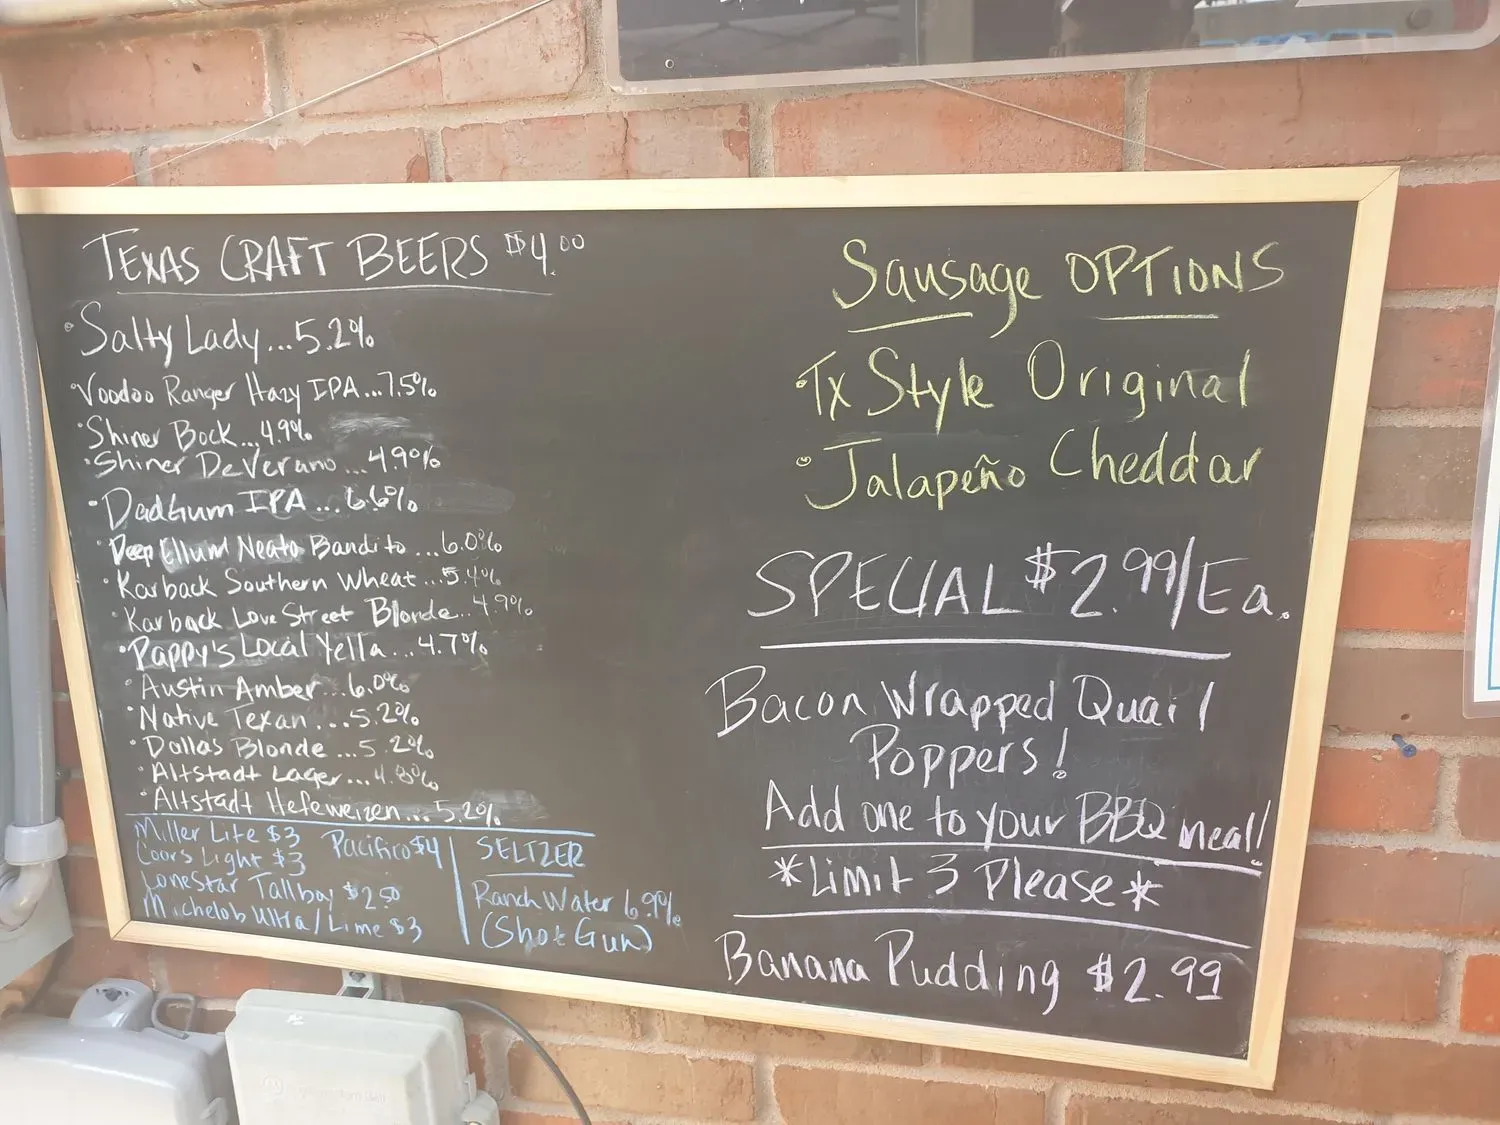 TEXAS CRAFT BEERS $4.00
• Salty Lady...5.2%
• Voodoo Ranger Hazy IPA...7.5%
• Shiner Bock...4.9%
• Shiner DeVerano...4.9%
• Dadgum IPA...6.6%
• Deep Ellum Neato Bandito...6.0%
• Karback Southern Wheat...5.4%
• Karback Love Street Blonde...4.9%
• Pappy's Local Yella...4.7%
• Austin Amber...6.0%
• Native Texan...5.2%
• Dallas Blonde...5.2%
• Altstadt Lager...4.8%
• Altstadt Hefeweizen...5.2%
Miller Lite $3
Coors Light $3
LoneStar Tallboy $2.50
Michelob Ultra/Lime $3
Pacifico $4
SELTZER
Ranch Water 6.9%
(Shot Gun)
Sausage OPTIONS
• Tx Style Original
• Jalapeño Cheddar
SPECIAL $2.99/Ea.
Bacon Wrapped Quail
Poppers!
Add one to your BBQ meal!
*Limit 3 Please*
Banana Pudding $2.99